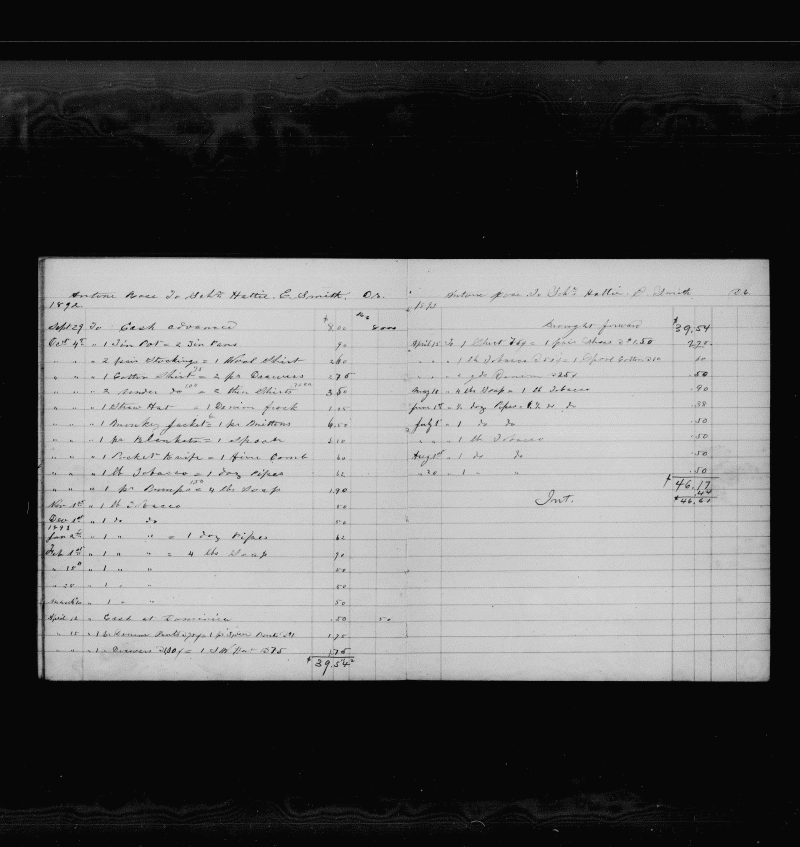 Antone Rose To Schr Hattie. E. Smith. Dr.
1892
Sept 29 To Cash advanced $ 8.00 8.00
Oct 4th " 1 Tin Pot = 2 Tin Pans 90
" " " 2 pair Stockings = 1 Wool Shirt 2.60
" " " 1 Cotton Shirt 75 = 2 pr Drawers 2.75
" " " 2 under do = 2 thin Shirts 3.50
" " " 1 Straw Hat 1 Denim frock
" " " 1 Monkey jacket = 1 pr Mittens 6.50
" " " 1 pr Blankets = 1 Spoon 2.10
" " " 1 Pocket Knife = 1 Fine Comb 60
" " " 1 lb Tobacco = 1 doz Pipes 62
" " " 1 pr Pumps 150 = 4 lbs Soap 1.90
Nov 1st " 1 lb Tobacco 50
Dec 1st " 1 do do 50
1893
Jan " 1 " " = 1 doz Pipes 62
Feb 1st " 1 " " = 4 lbs Soap 90
" 15th " 1 " " 50
" 28 " 1 " " 50
March " 1 " " 50
April 12 " Cash at Dominica .50 50
" 15 " 1 pr Pants = 1 pr Pants
" " " 1 " Drawers = 1 Hat 75 1.75
$ 39.54
Antone Rose To Schr Hattie. E. Smith Dr.
Brought forward $ 39.54
April 15 To 1 Shirt = 1 pair Shoes 1.50 2.25
" " " 1 lb Tobacco = 1 Spool Cotton 60
" " " 2 yds Denim 25 .50
" 4 lbs Soap = 1 lb Tobacco .90
June 1st " doz Pipes = do .38
July 1 " 1 do do .50
" " 1 lb Tobacco .50
Aug 1st " 1 do do .50
" 20 " 1 " " .50
$ 46.17
Int. .44
$ 46.61